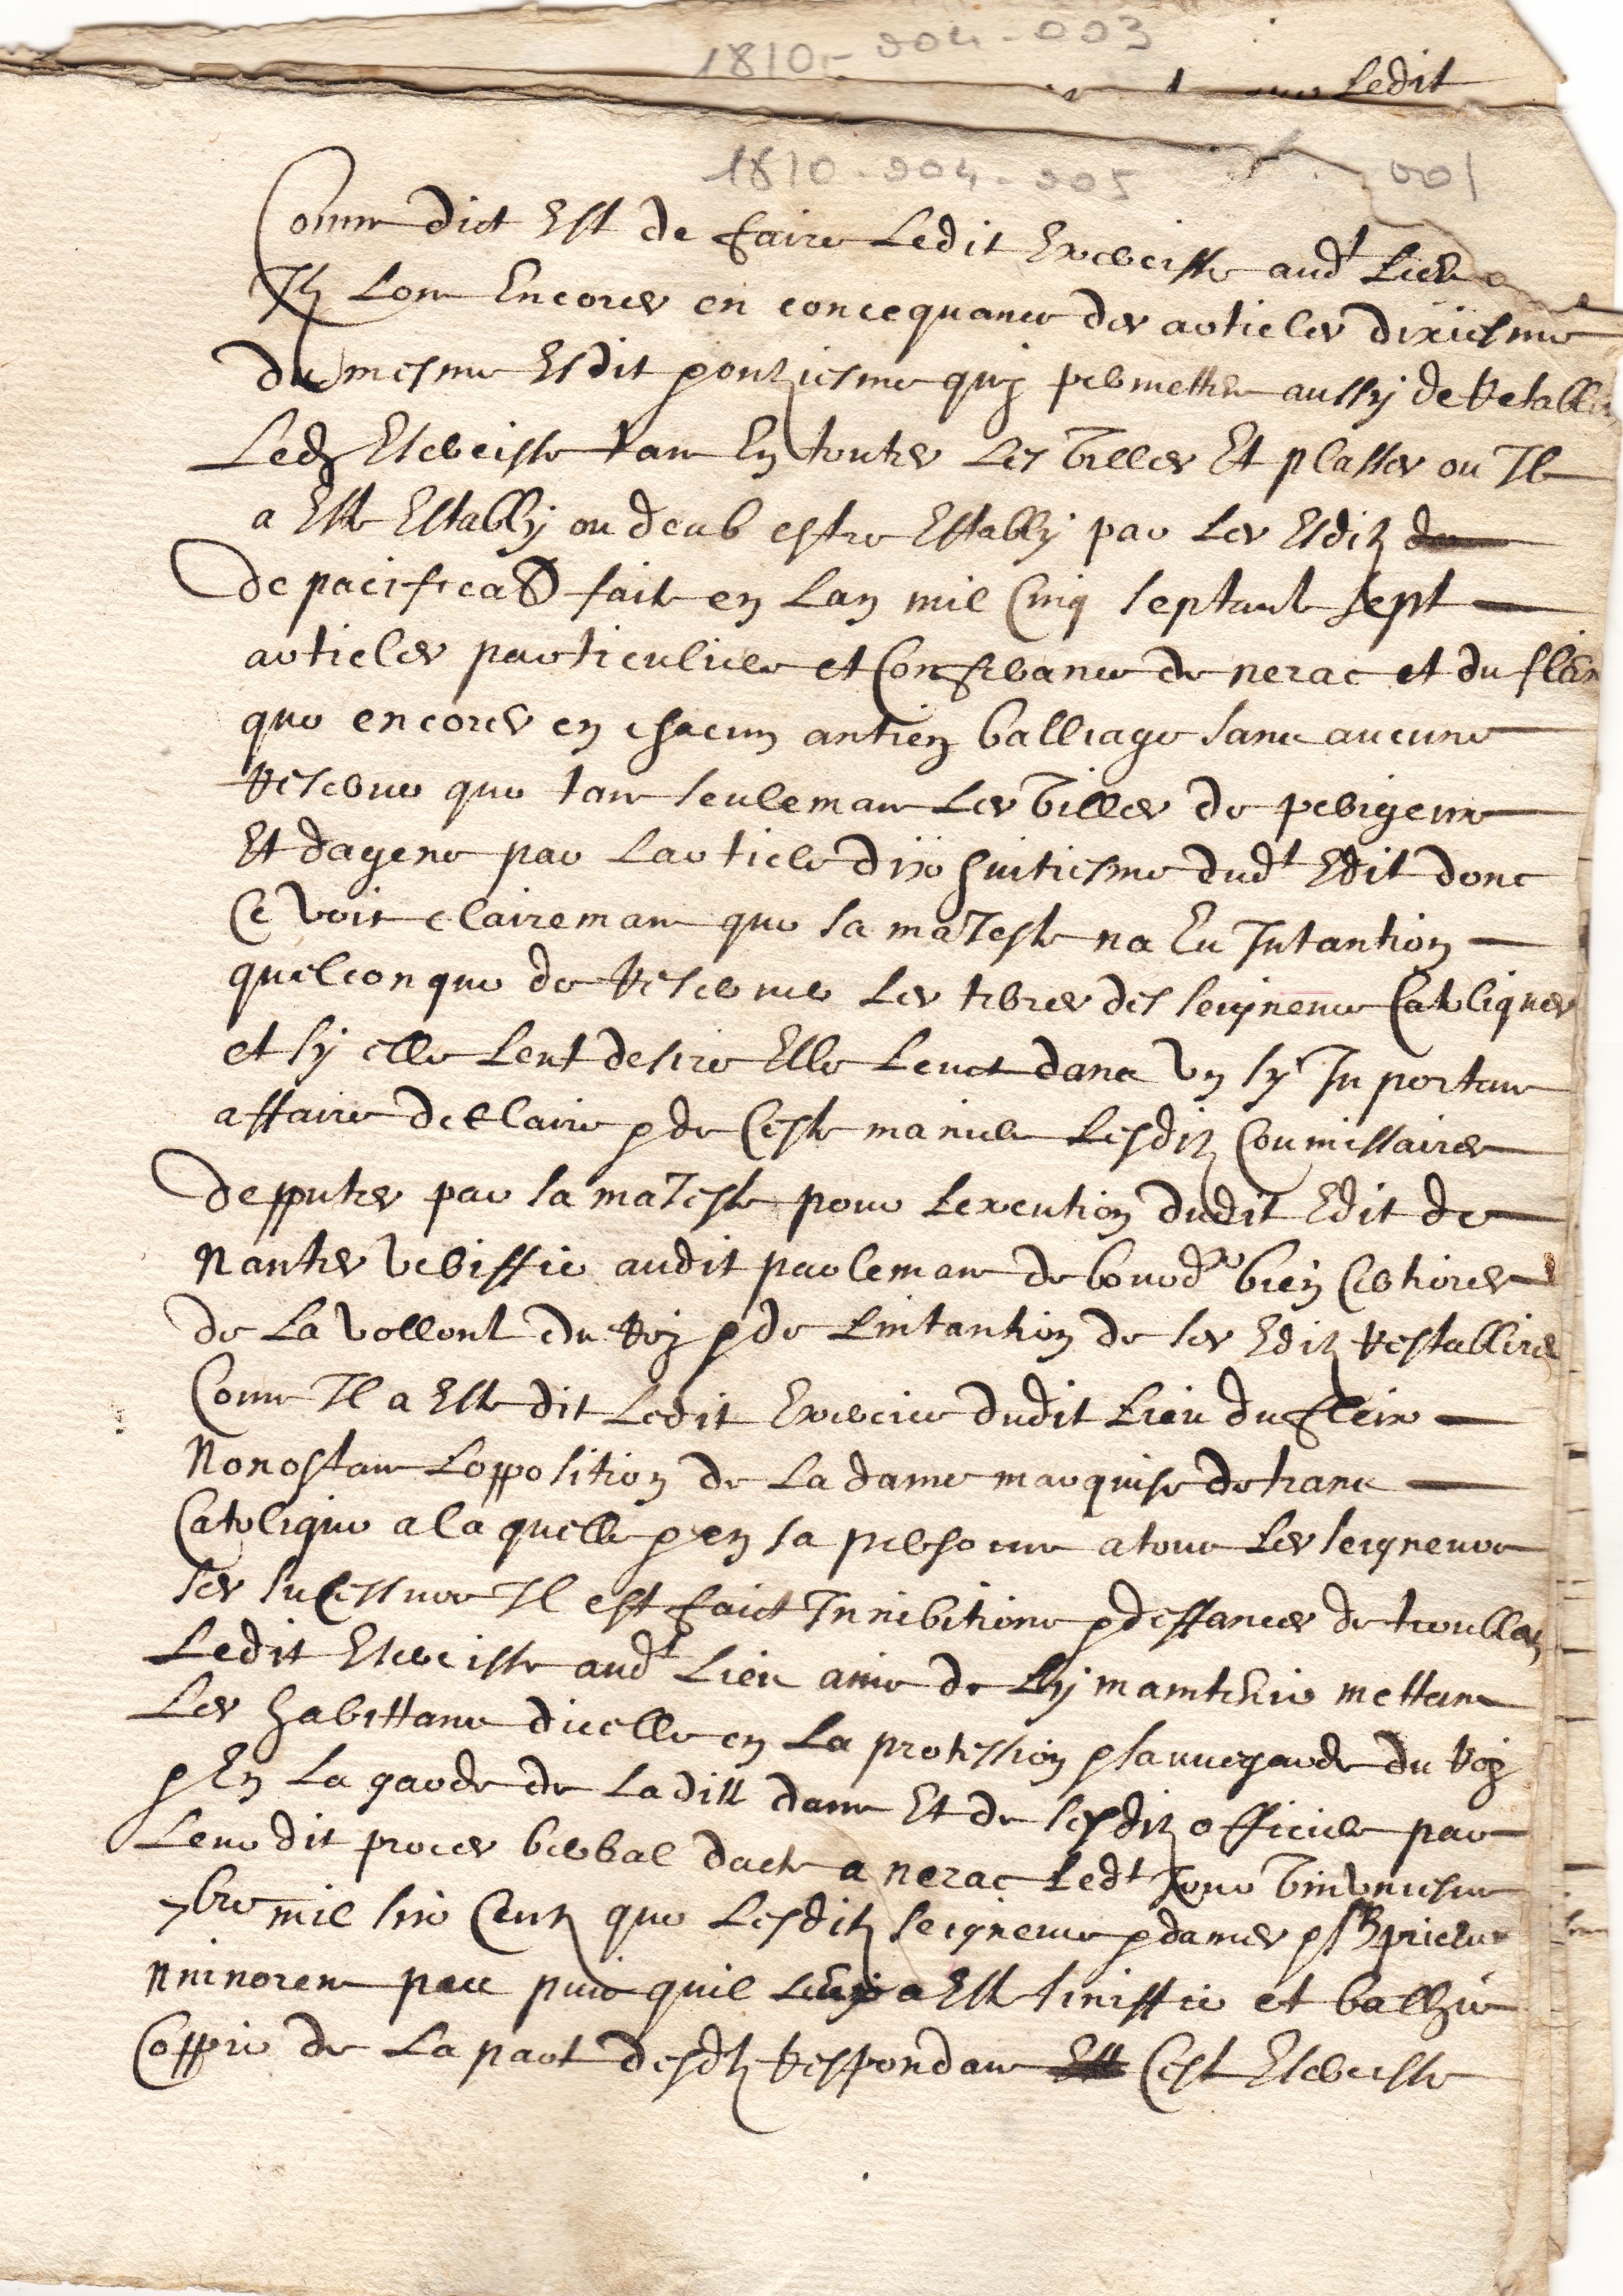 1810-004-003
Ledit
1810-004-005
001
Comme dict Est de faire Ledit Exercisse aud^t Lieu
Ilz Lont Encores en concequance des articles dixiesme
du mesme Esdit & onziesme quy permettent aussy de retablir
Led^z Esercisse tant En toutes Les villes Et plasses ou Il
a Esté Establly ou deub estre Establly par Les Esditz
de pacification fait en Lan mil Cinq septante sept
articles particuliers et Conferance de nerac et du fleix
que encores en chacun antien balliage sans aucune
reserve que tant seulemant Les villes de perigeux
Et dagene par Larticle dix huitiesme dud^t Edit dont
Ce voit clairemant que sa maIesté na Eu Intantion
quelconque de reserver Les terres des seigneurs Catoliques
et sy elle Leut desire Elle Leuct dans un sy Inportant
affaire declaire & de Ceste maniere Lesditz Coumissaires
depputes par sa maIesté pour Lexecution dudit Edit de
Nantes veriffié audit parlemant de bourd^x bien Certiores
de La vollonté du Roy & de Lintantion de ses Editz restablirent
Comme Il a Esté dit Ledit Exercice dudit Lieu du fleix
Nonostant Lopposition de La dame marquise de trans
Catolique a la quelle & en sa persoune a tous Les seigneurs
ses sucesseurs Il est faict Innibitions & deffances de troubller
Ledit Esercisse aud^t Lieu ains de Ly maintenir mettant
Les habittans dicelle en La protession & sauvegarde du Roy
& En La garde de Laditte dame Et de sesditz officiers par
Leur dit proces verbal datté a nerac Led^t Jour vintuniesme
7bre mil six Centz que Lesditz seigneurs & dames &
Nninorent pas puis quil Leur a Esté siniffié et baillhé
Coppie de La part desd^z respondans Cest Esercisse